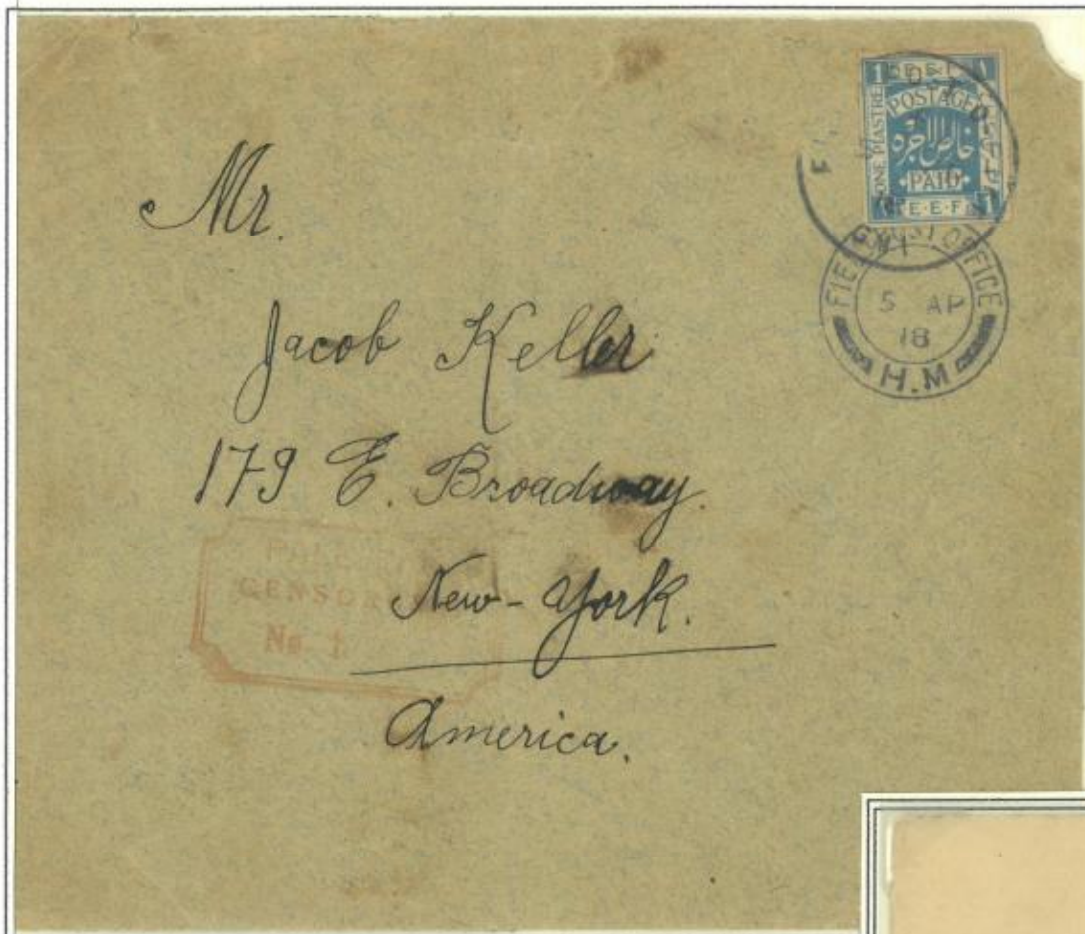 E.E.F
1 POSTAGE ١
ONE PIASTRE
خالص الاجرة
PAID
1 E.E.F 1
FIELD POST OFFICE
5 AP
18
H.M
Mr.
Jacob Keller
179 E. Broadway.
New-York.
America.
CENSOR
No. 1